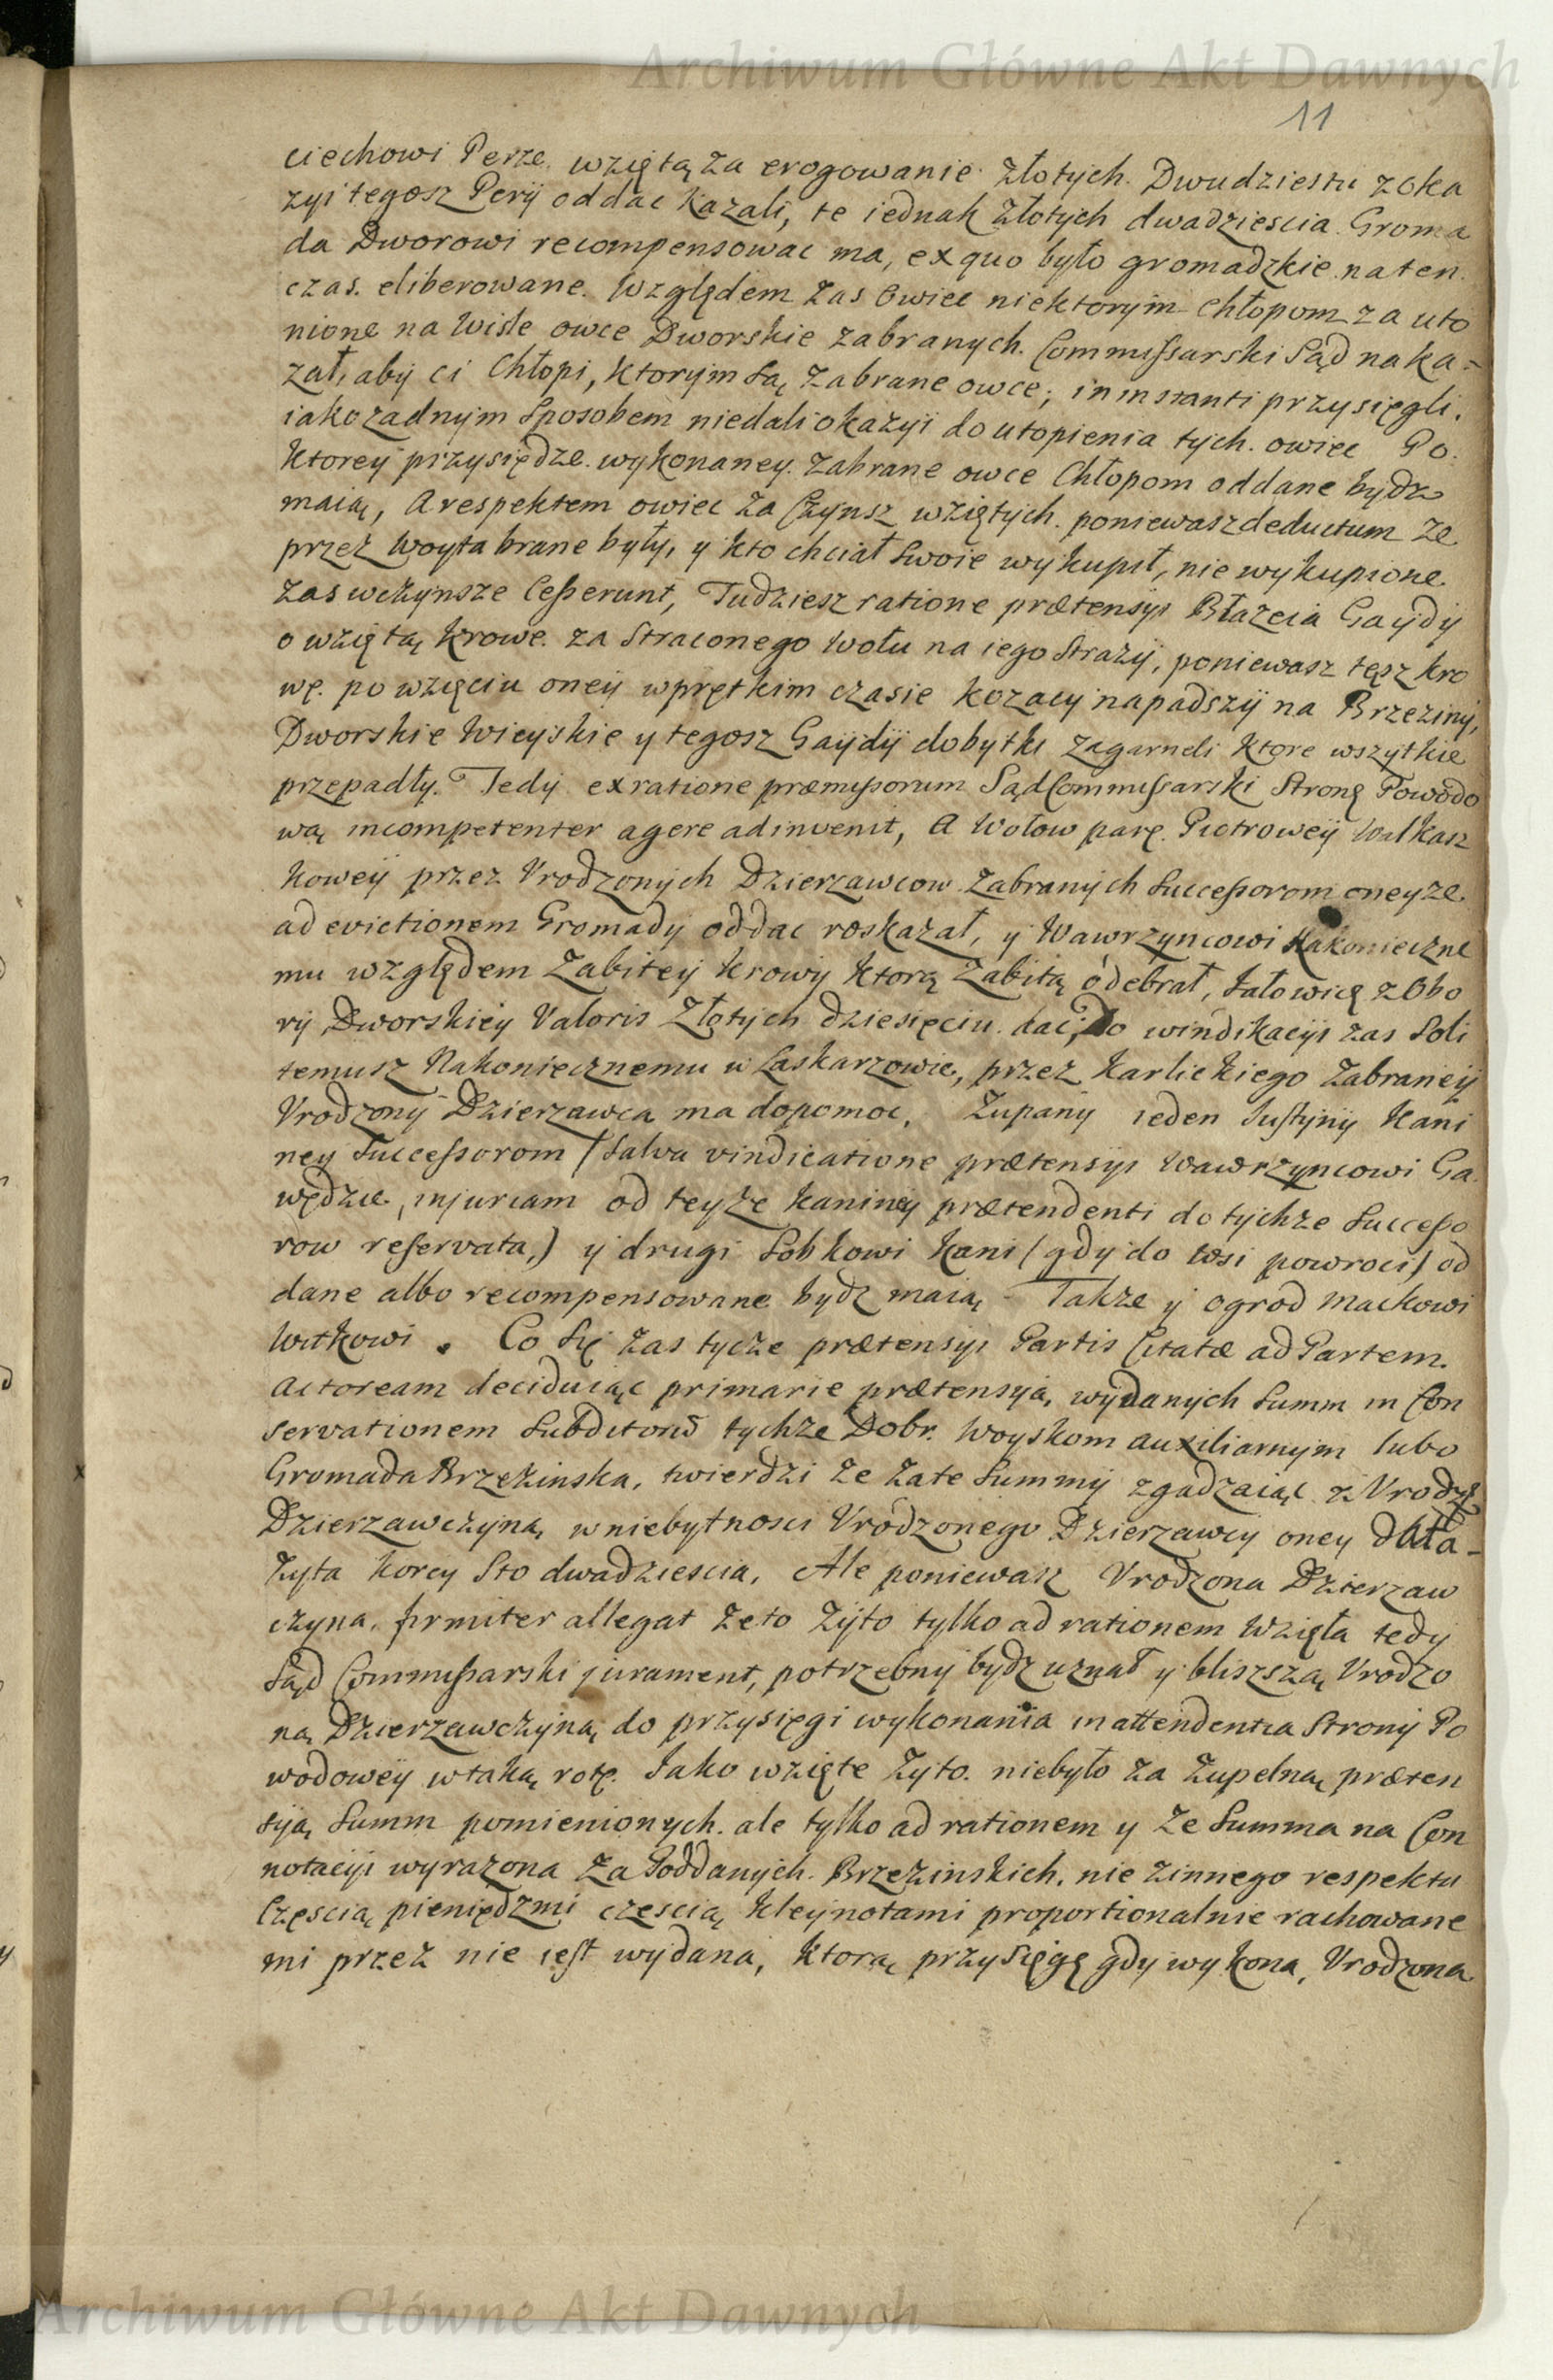 Archiwum Główne Akt Dawnych
11
ciechowi Perze. wziętą za erogowanie złotych. Dwudziestu z oka
zyi tegosz Perÿ oddac kazali, te iednak złotych dwadziescia Groma
da Dworowi recompensowac ma, ex quo było gromadzkie na ten
czas. eliberowane. Względem zas Owiec niektorym Chłopom za uto
nione na Wisle owce Dworskie zabranych. Commissarski Sąd naka-
zał, aby ci Chłopi, ktorym są zabrane owce; in instanti przysięgli.
iako zadnym sposobem niedali okazyi do utopienia tych. owiec Po.
ktorey przysiędze. wykonaney. zabrane owce Chłopom oddane bydz
maią, A respektem owiec za Czynsz wziętych. poniewasz deductum ze
przez Woyta brane były, y kto chciał swoie wykupił, nie wykupione.
zas w czynsze Cesserunt, Tudziesz ratione prætensyi Błazeia Gaydy
o wziętą krowe. za straconego Wołu na iego strazy, poniewasz tęsz kro
wę. po wzięciu oney w prętkim czasie kozacy napadszy na Brzeziny,
Dworskie Wieyskie y tegosz Gaydÿ dobytki zagarneli ktore wszytkie
przepadły. Tedy ex ratione præmissorum Sąd Commissarski Stronę Powodo
wą incompetenter agere adinvenit, A Wołow parę. Piotrowey Walkasz
kowey przez Vrodzonych Dzierzawcow zabranych Successorom oneyze
ad evictionem Gromady oddac roskazał, y Wawrzyncowi Nakonieczne
mu względem zabitey krowy ktorą zabitą odebrał, Jałowicę z Obo
ry Dworskiey Valoris Złotych dziesięciu. dac, Do windikacyi zas Soli
temusz Nakoniecznemu w Laskarzowie, przez Karlickiego zabraney
Vrodzony Dzierzawca ma dopomoc, Zupany ieden Justyny Kani
ney Successorom (salva vindicatione prætensyi Wawrzyncowi Ga
wędzie, injuriam od teyze kaniney prætendenti do tychze Successo
row reservata,) y drugi Sobkowi Kani (gdy do wsi powroci) od
dane albo recompensowane bydz maią Takze y ogrod Mackowi
Witkowi. Co się zas tycze prætensyi Partis Citatæ ad Partem.
Actoream deciduiąc primarie prætensyą, wydanych Summ in Con
servationem Subditorũ tychze Dobr. Woyskom auxiliarnym lubo
Gromada Brzezinska, twierdzi ze za te Summy zgadzaiąc z Vrodzą
Dzierzawczyną, w niebytnosci Vrodzonego Dzierzawcy oney dała-
Zyta korcy Sto dwadziescia, Ale poniewasz Vrodzona Dzierzaw
czyna. firmiter allegat ze to Zyto tylko ad rationem wzięła tedy
Sąd Commissarski jurament, potrzebny bydz uznał y bliszszą Vrodzo
ną Dzierzawczyną do przysięgi wykonania in attendentia Strony Po
wodowey w taką rotę. Jako wzięte Zyto. niebyło za zupełną præten
syą Summ pomienionych. ale tylko ad rationem y ze Summa na Con
notacyi wyrazona za Poddanych. Brzezinskich. nie z innego respektu
Częscią pieniędzmi częscią kleynotami proportionalnie rachowane
mi przez nie iest wydana, ktorą przysięgę gdy wykona, Vrodzona
Archiwum Główne Akt Dawnych